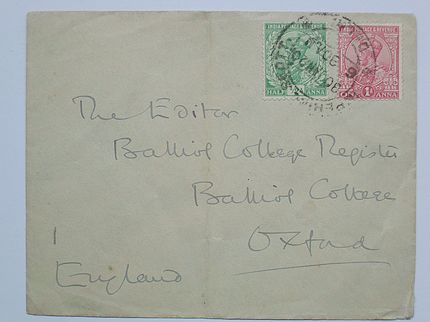 INDIA POSTAGE & REVENUE
HALF ANNA
INDIA POSTAGE & REVENUE
1A ANNA
The Editor
Balliol College Register
Balliol College
Oxford
England